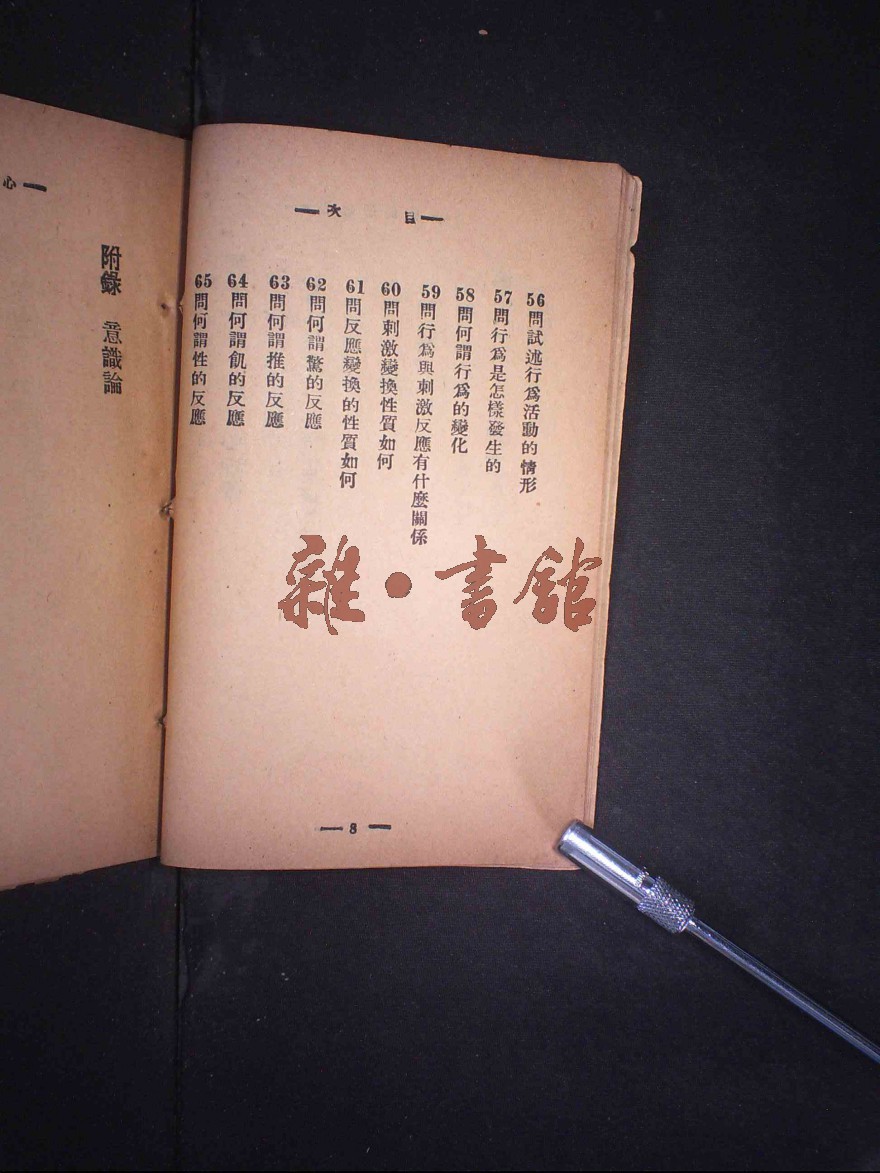 目次
56問試述行爲活動的情形
57問行爲是怎樣發生的
58問何謂行爲的變化
59問行爲與刺激反應有什麼關係
60問刺激變換性質如何
61問反應變換的性質如何
62問何謂驚的反應
63問何謂推的反應
64問何謂飢的反應
65問何謂性的反應
8
心
附錄 意識論
雜·書館